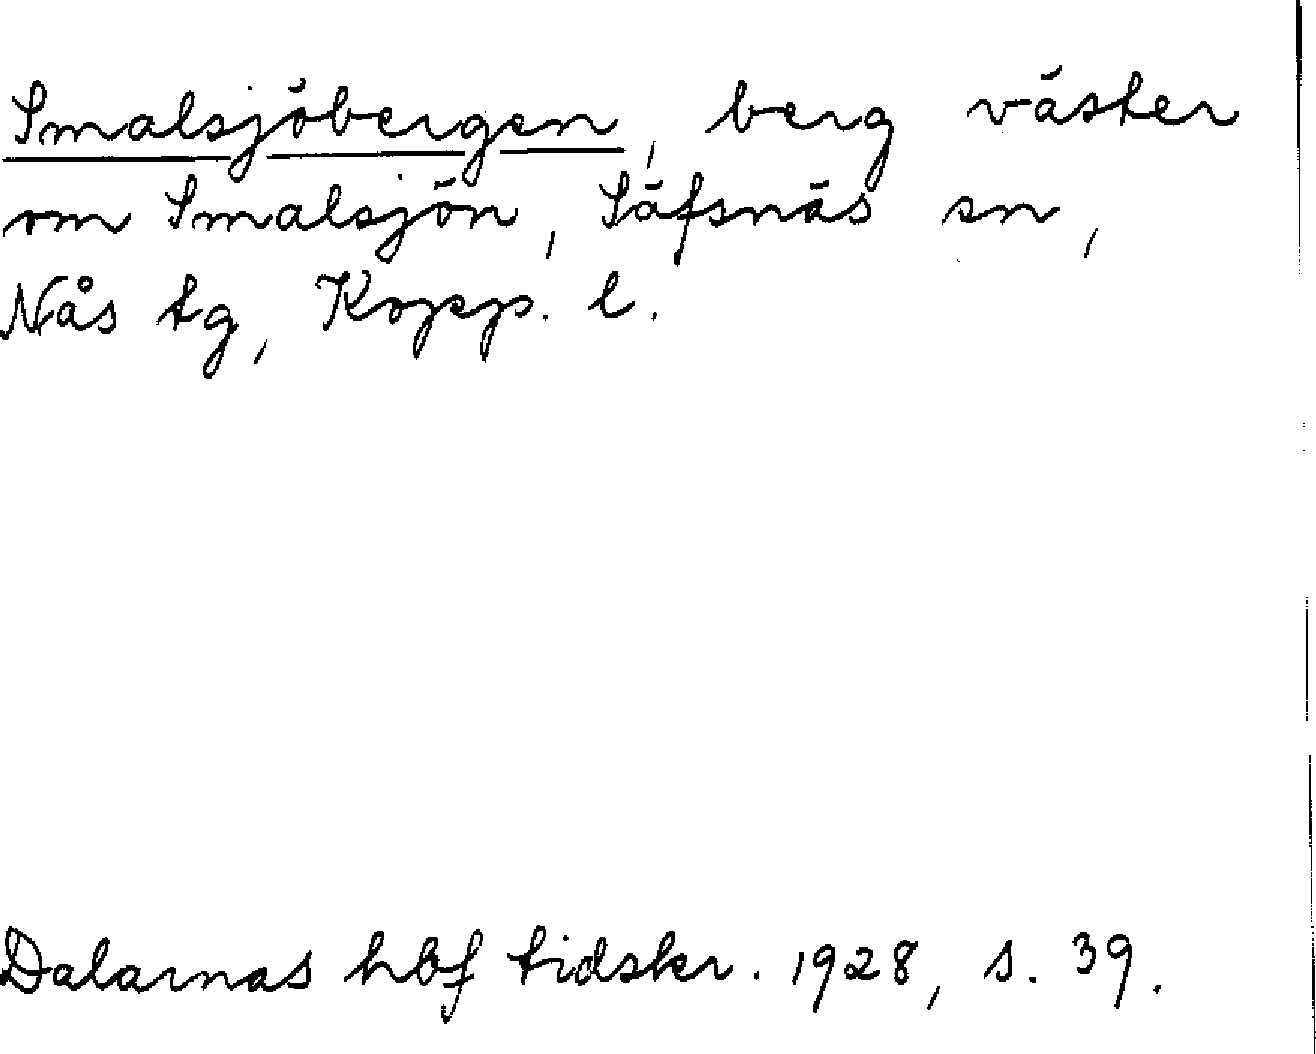 Smalsjöbergen, berg väster
om Smalsjön, Säfsnäs sn,
Nås tg, Kopp. l.
Dalarnas hbf tidskr. 1928, s. 39.